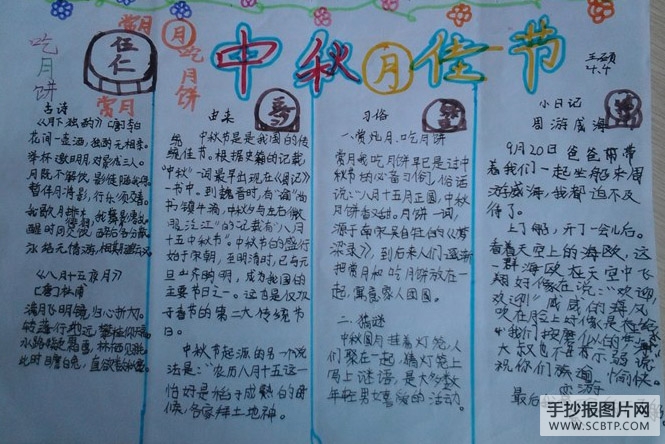 中秋月佳节
赏月
月
吃月饼
吃月饼
赏月
伍仁
王硕
4.4
古诗
《月下独酌》
花间一壶酒,独酌无相亲。
举杯邀明月,对影成三人。
月既不解饮,影徒随我身。
暂伴月将影,行乐须及春。
永结无情游,相期邈云汉。
《八月十五夜月》
满月飞明镜,归心折大刀。
此时瞻白兔,直欲数秋毫。
由来
中秋节是是我国的传
统佳节。根据史籍的记载,
“中秋”一词最早出现在《周记》
一书中。到魏晋时,有“谕尚
书镇牛渚,中秋夕与左右微
服泛江”的记载有“八月
十五中秋节”。中秋节的盛行
始于宋朝,至明清时,已与元
旦齐名,成为我国的
主要节日之一。这也是仅次
于春节的第二大传统节
日。
中秋节起源的另一个说
法是:“农历八月十五这一
恰好是稻子成熟的时
候,各家拜土地神。
习俗
一.赏月、吃月饼
赏月吃月饼早已是过中
秋节的必备习俗,俗话
说:“八月十五月正圆,中秋
月饼香又甜。月饼一词,
源于南宋吴自牧的《梦
梁录》,到后来人们逐渐
把赏月和吃月饼放在一
起,寓意家人团圆。
二.猜谜
中秋圆月挂着灯笼,人
们聚在一起,猜灯笼上
写上谜语,是大多数
年轻男女喜爱的活动。
小日记
周游威海
9月20日爸爸带
着我们一起坐船来周
游威海,我都迫不及
待了。
上了船,开了一会儿后。
看着天空上的海欧,这
群海欧在天空中飞
翔好像在说:“欢迎,
欢迎!”威威的海风
吹在脸上好像是在给
我们按摩似的
祝你们旅途愉快。
最后
手抄报图片网
WWW.SCBTP.COM